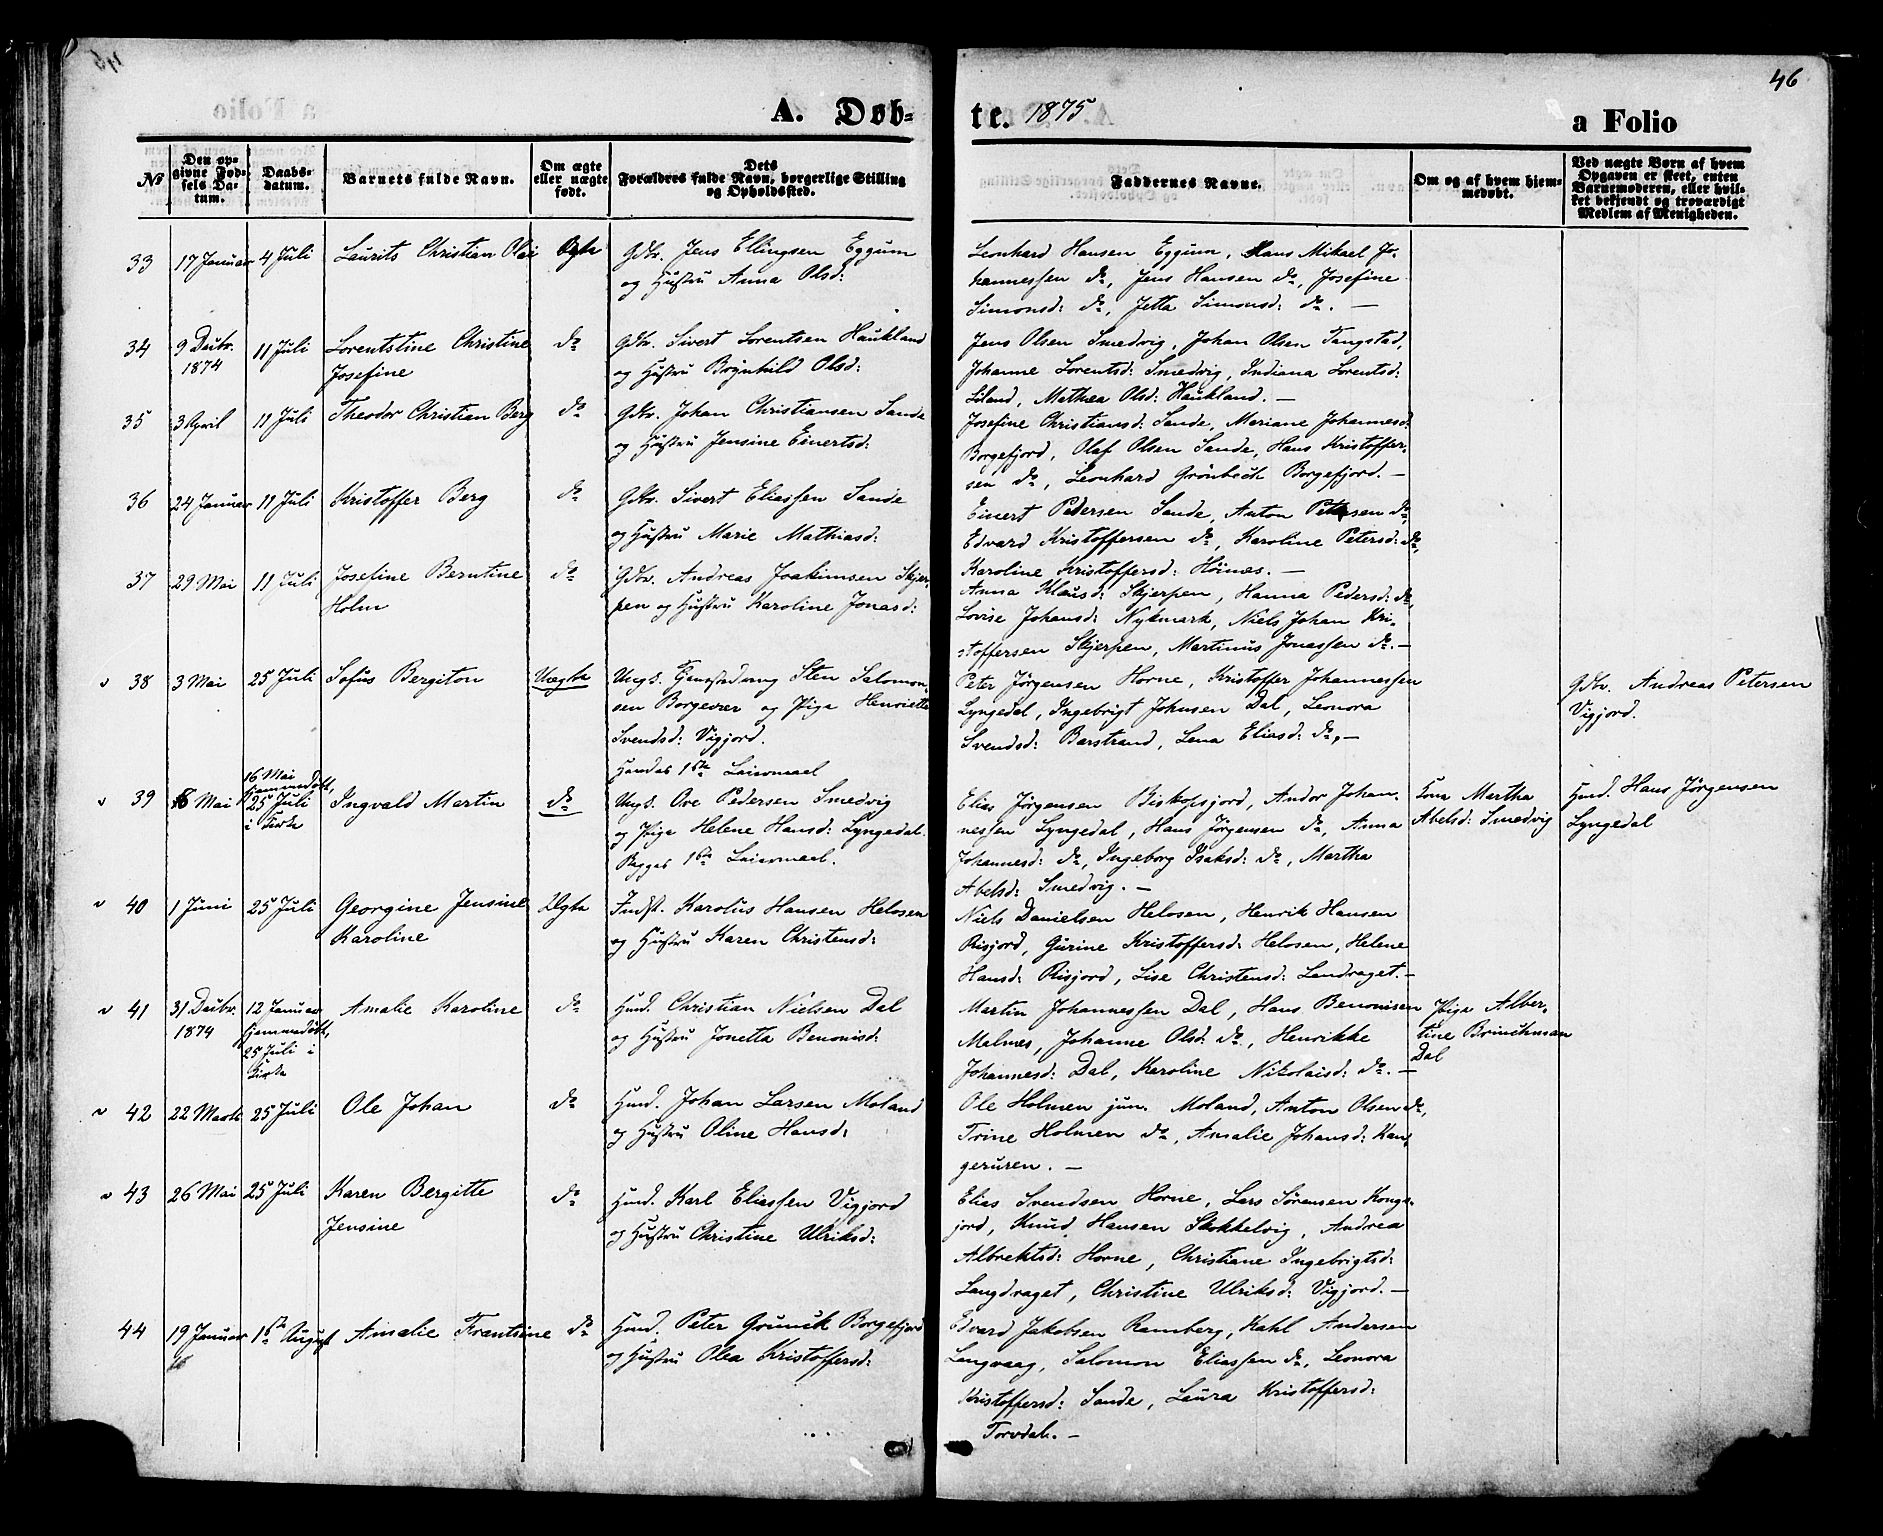 46
A. Døb-
te. 1875
a Folio
No
Den op-
givne Fød-
sels Da-
tum.
Daabs-
datum.
Barnets fulde Navn.
Om ægte
eller uægte
født.
Dets
Forældres fulde Navn, borgerlige Stilling
og Opholdssted.
Faddernes Navne.
Om og af hvem hjem-
medøbt.
Ved uægte Børn af hvem
Opgaven er skeet, enten
Barnemoderen, eller hvil-
ket bekjendt og troværdigt
Medlem af Menigheden.
33 17 Januar 4 Juli Laurits Christian Olai Ægte Gdbr. Jens Ellingsen Eggum
og Hustru Anna Olsd:
Leonhard Hansen Eggum, Hans Mikael Jo-
hannessen do, Jens Hansen do, Josefine
Simonsd: do, Jetta Simonsd: do. —
34 9 Decbr. 11 Juli Lorentstine Christine do Gdbr. Sivert Lorentsen Haukland
1874 Josefine og Hustru Brynhild Olsd:
Jens Olsen Smedvig, Johan Olsen Tangstad,
Johanne Lorentsd: Smedvig, Indiana Lorentsd:
Liland, Mathea Olsd: Haukland. —
35 3 April 11 Juli Theodor Christian Berg do Gdbr. Johan Christiansen Sande
og Hustru Jensine Einertsd:
Josefine Christiansd: Sande, Mariane Johannesd:
Borgefjord, Olaf Olsen Sande, Hans Kristoffer-
sen do, Leonhard Grönbech Borgefjord. —
36 24 Januar 11 Juli Kristoffer Berg do Gdbr. Sivert Eliassen Sande
og Hustru Marie Mathiasd:
Einert Pedersen Sande, Anton Petersen do,
Edvard Kristoffersen do, Karoline Petersd: do,
Karoline Kristoffersd: Höines. —
37 29 Mai 11 Juli Josefine Berntine do Gdbr. Andreas Joakimsen Skjer-
Holm pen og Hustru Karoline Jonasd:
Anna Klausd: Skjerpen, Hanna Pedersd: do,
Lovise Johansd: Nykmark, Niels Johan Kri-
stoffersen Skjerpen, Martinus Jonassen do. —
38 3 Mai 25 Juli Sofus Bergiton Uægte Ungk. Sten Salomon-
sen Borgevær og Pige Henriette
Svendsd: Vigjord.
Hendes 1ste Leiermaal
Peter Jörgensen Horne, Kristoffer Johannessen
Lyngedal, Ingebrigt Johnsen Dal, Leonora
Svendsd: Barstrand, Lena Eliasd: do, —
Gdbr. Andreas Petersen
Vigjord.
39 8 Mai 16 Mai
hjemmedöbt,
25 Juli
i Kirke
Ingvald Martin do Ungk. Ove Pedersen Smedvig
og Pige Helene Hansd: Lyngedal.
Begges 1ste Leiermaal.
Elias Jörgensen Biskopsjord, Andor Johan-
nessen Lyngedal, Hans Jörgensen do, Anna
Johannesd: do, Ingeborg Isaksd: do, Martha
Abelsd: Smedvig. —
Kone Martha
Abelsd: Smedvig
Husd. Hans Jörgensen
Lyngedal
40 1 Juni 25 Juli Georgine Jensine Ægte Indst. Karolus Hansen Helosen
Karoline og Hustru Karen Christensd:
Niels Danielsen Helosen, Henrik Hansen
Risjord, Gurine Kristoffersd: Helosen, Helene
Hansd: Risjord, Lise Christensd: Landraget. —
41 31 Decbr. 12 Januar Amalie Karoline do Husd. Christian Nielsen Dal
1874 hjemmedöbt, og Hustru Jonetta Benonisd:
25 Juli i
Kirke
Martin Johannessen Dal, Hans Benonisen
Malnes, Johanne Olsd: do, Henrikke
Johannesd: Dal, Karoline Nikolaisd: do. —
Pige Alber-
tine Brinchman
Dal
42 22 Marts 25 Juli Ole Johan do Husd. Johan Larsen Moland
og Hustru Oline Hansd:
Ole Holmen jun. Moland, Anton Olsen do,
Trine Holmen do, Amalie Johansd: Kan-
geruren. —
43 26 Mai 25 Juli Karen Bergitte do Husd. Karl Eliassen Vigjord
Jensine og Hustru Christine Ulriksd:
Elias Svendsen Horne, Lars Sörensen Kongs-
jord, Knud Hansen Stokkelvig, Andrea
Albrektsd: Horne, Christiane Ingebrigtsd:
Langdraget, Christine Ulriksd: Vigjord. —
44 19 Januar 1ste August Amalie Frantsine do Husd. Peter Grunnik Borgefjord
og Hustru Olea Kristoffersd:
Edvard Jakobsen Ramberg, Kahl Andersen
Langvaag, Salomon Eliassen do, Leonora
Kristoffersd: Sande, Laura Kristoffersd:
Torvdal. —